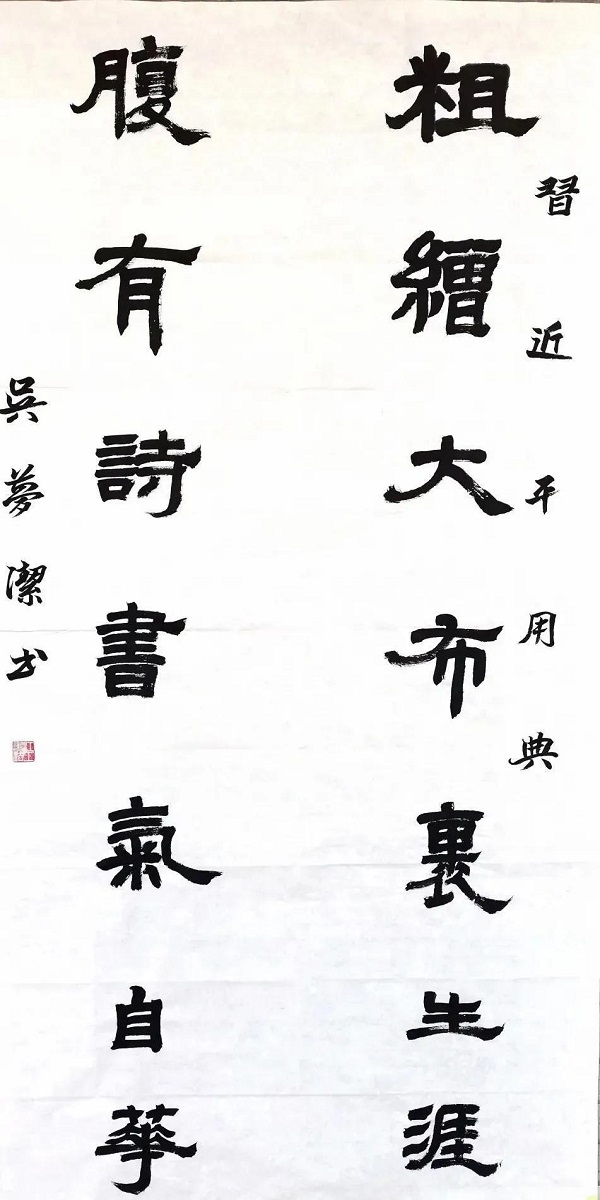 習近平用典
粗繒大布裹生涯
腹有詩書氣自華
吳夢潔书